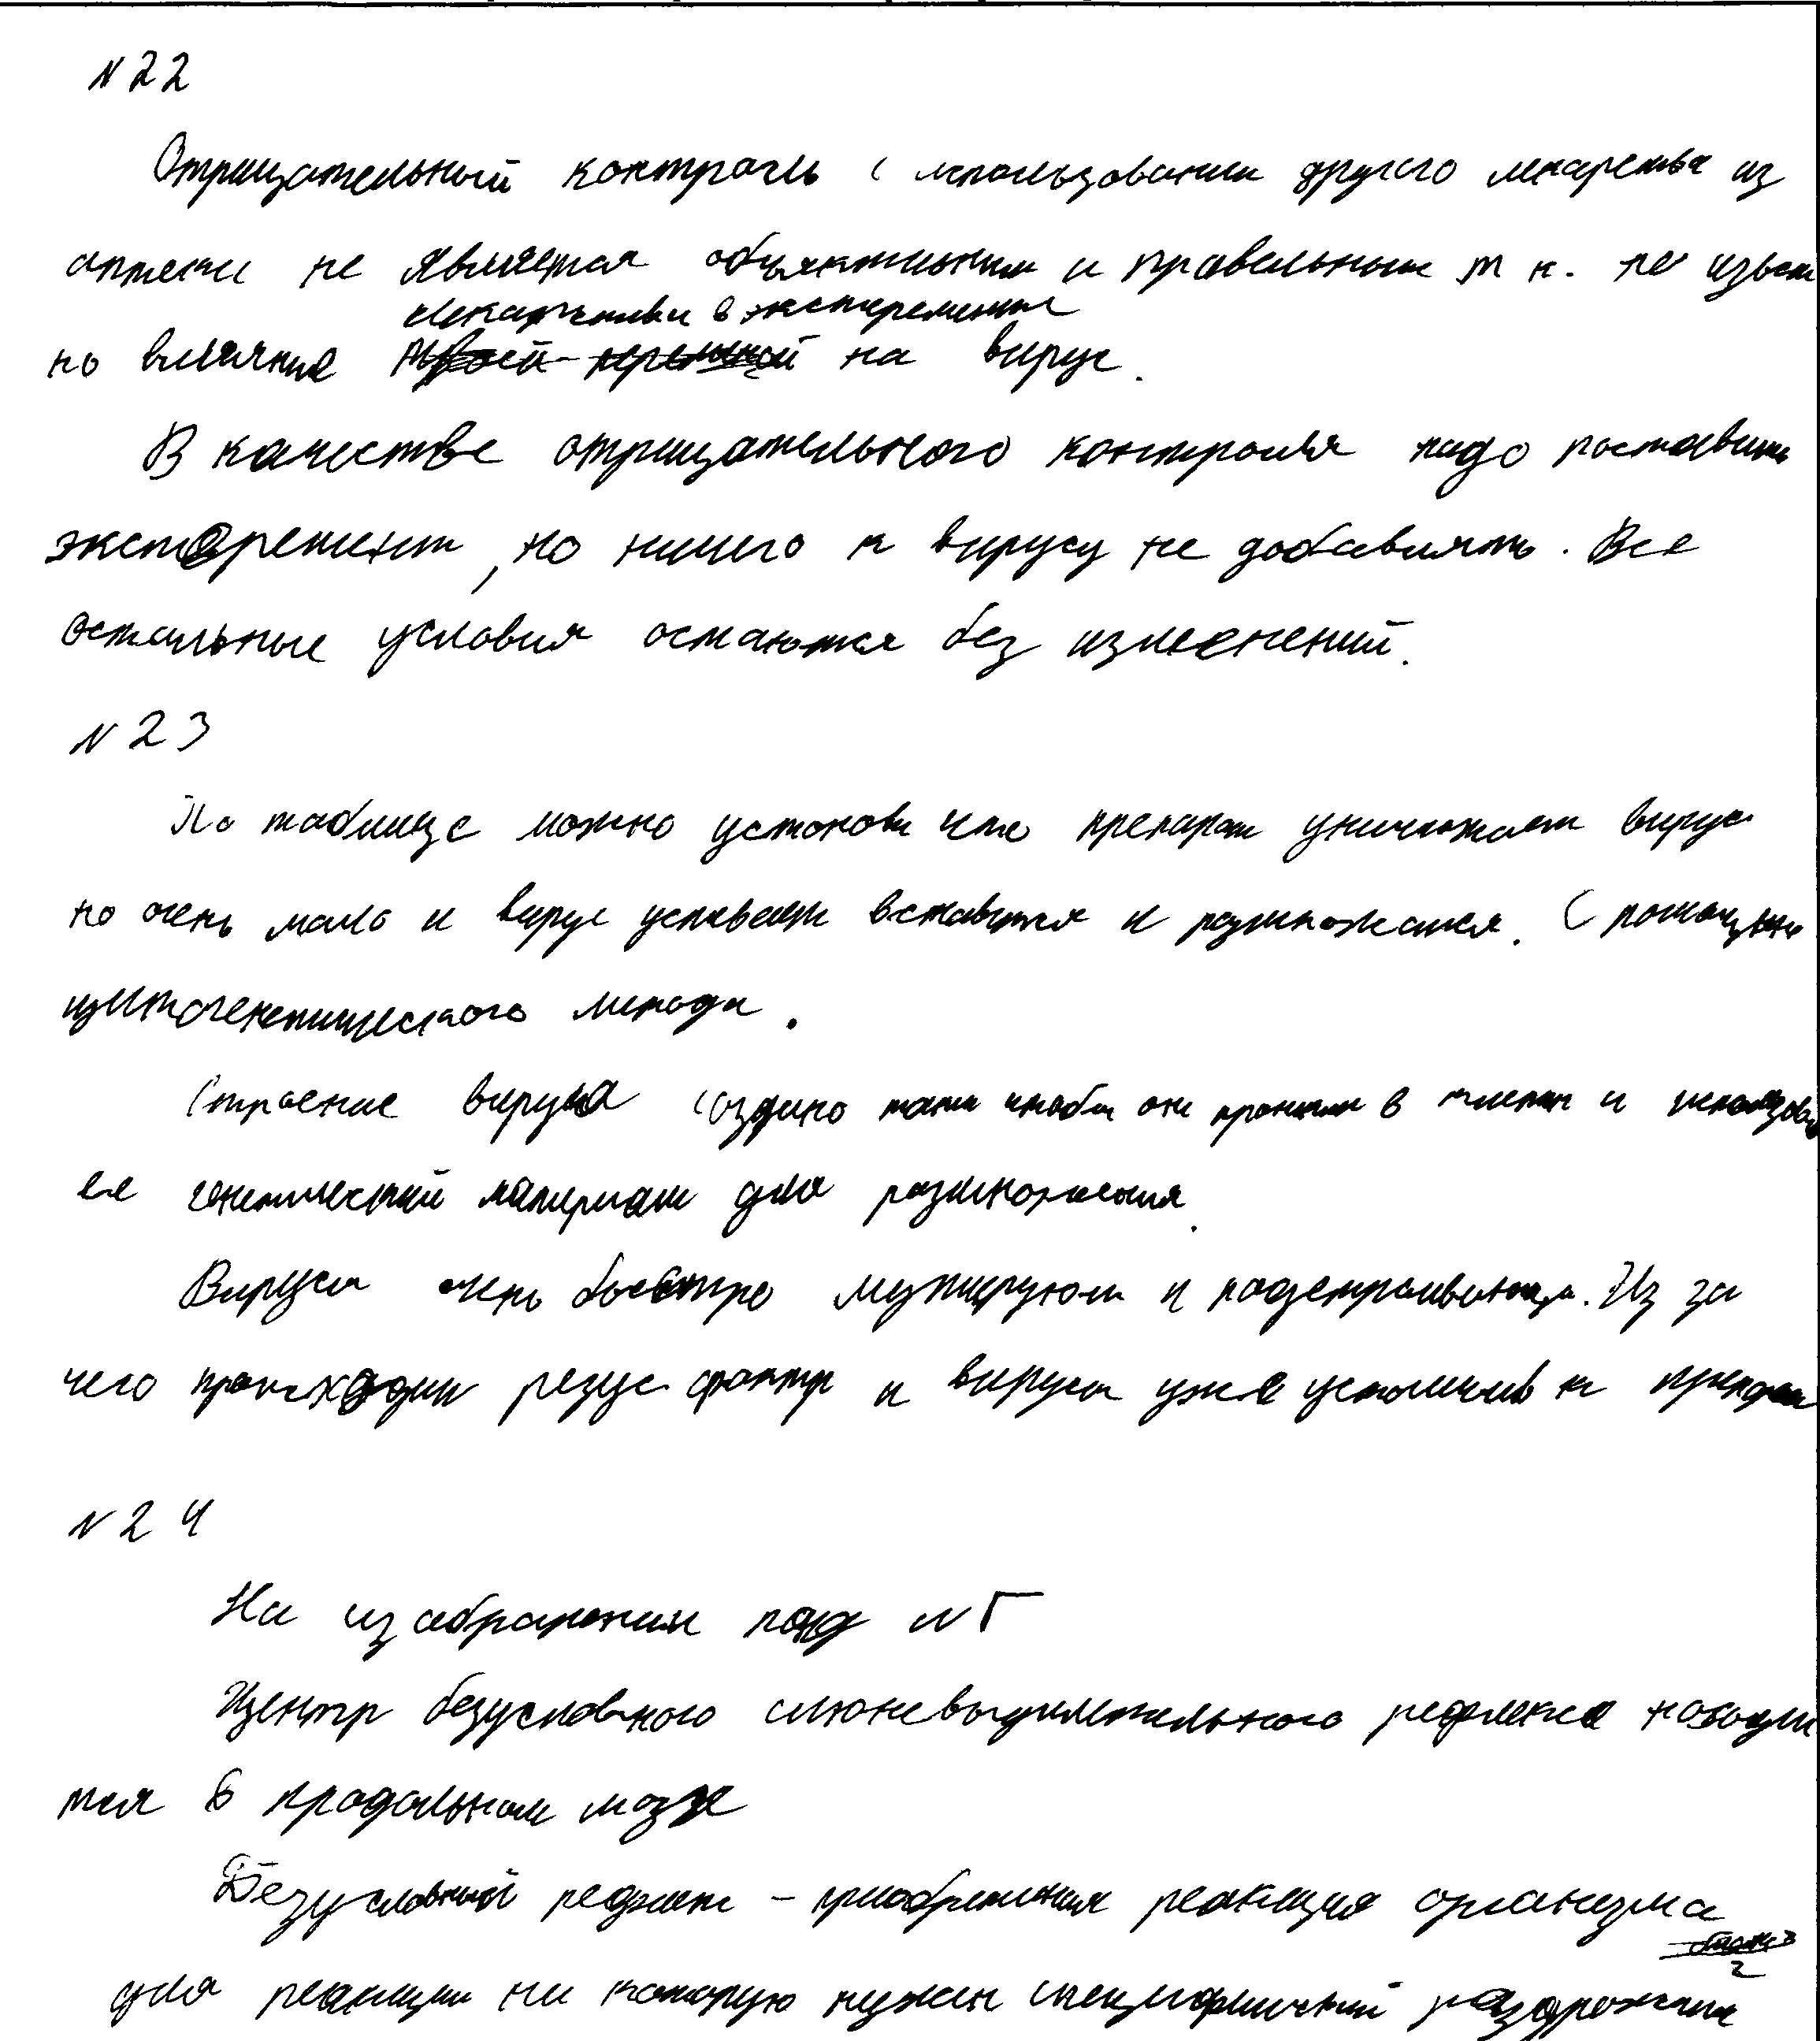 N 22
Отрицательный контроль с использованием другого лекарства из
аптеки не является объективным и правельным т к. не извест
лекарственные в эксперементе
но влияние на вирус.
В качестве отрицательного контроля надо поставить
эксперемент, но ничего к вирусу не добавлять. Все
остальные условия остаются без изменений.
N 23
По таблице можно установи что препарат уничтожает вирус
но очень мало и вирус успевает вставится и размножатся. С помощью
цитогенетического метода.
Строение вируса создано таки чтобы они проникли в клетки и использова
ее генетический материал для размножения.
Вирусы очень быстро мутируют и подстраиваются. Из за
чего происходит резус фактор и вирусы уже устойчив к препара
N 24
На изображении под N Г
Центр безусловного слюневыделительного рефлекса находи
тся в продольном мозге
Безусловный рефлекс - приобретеная реакция организма
для реакции на которую нужен специфический раздрожитель